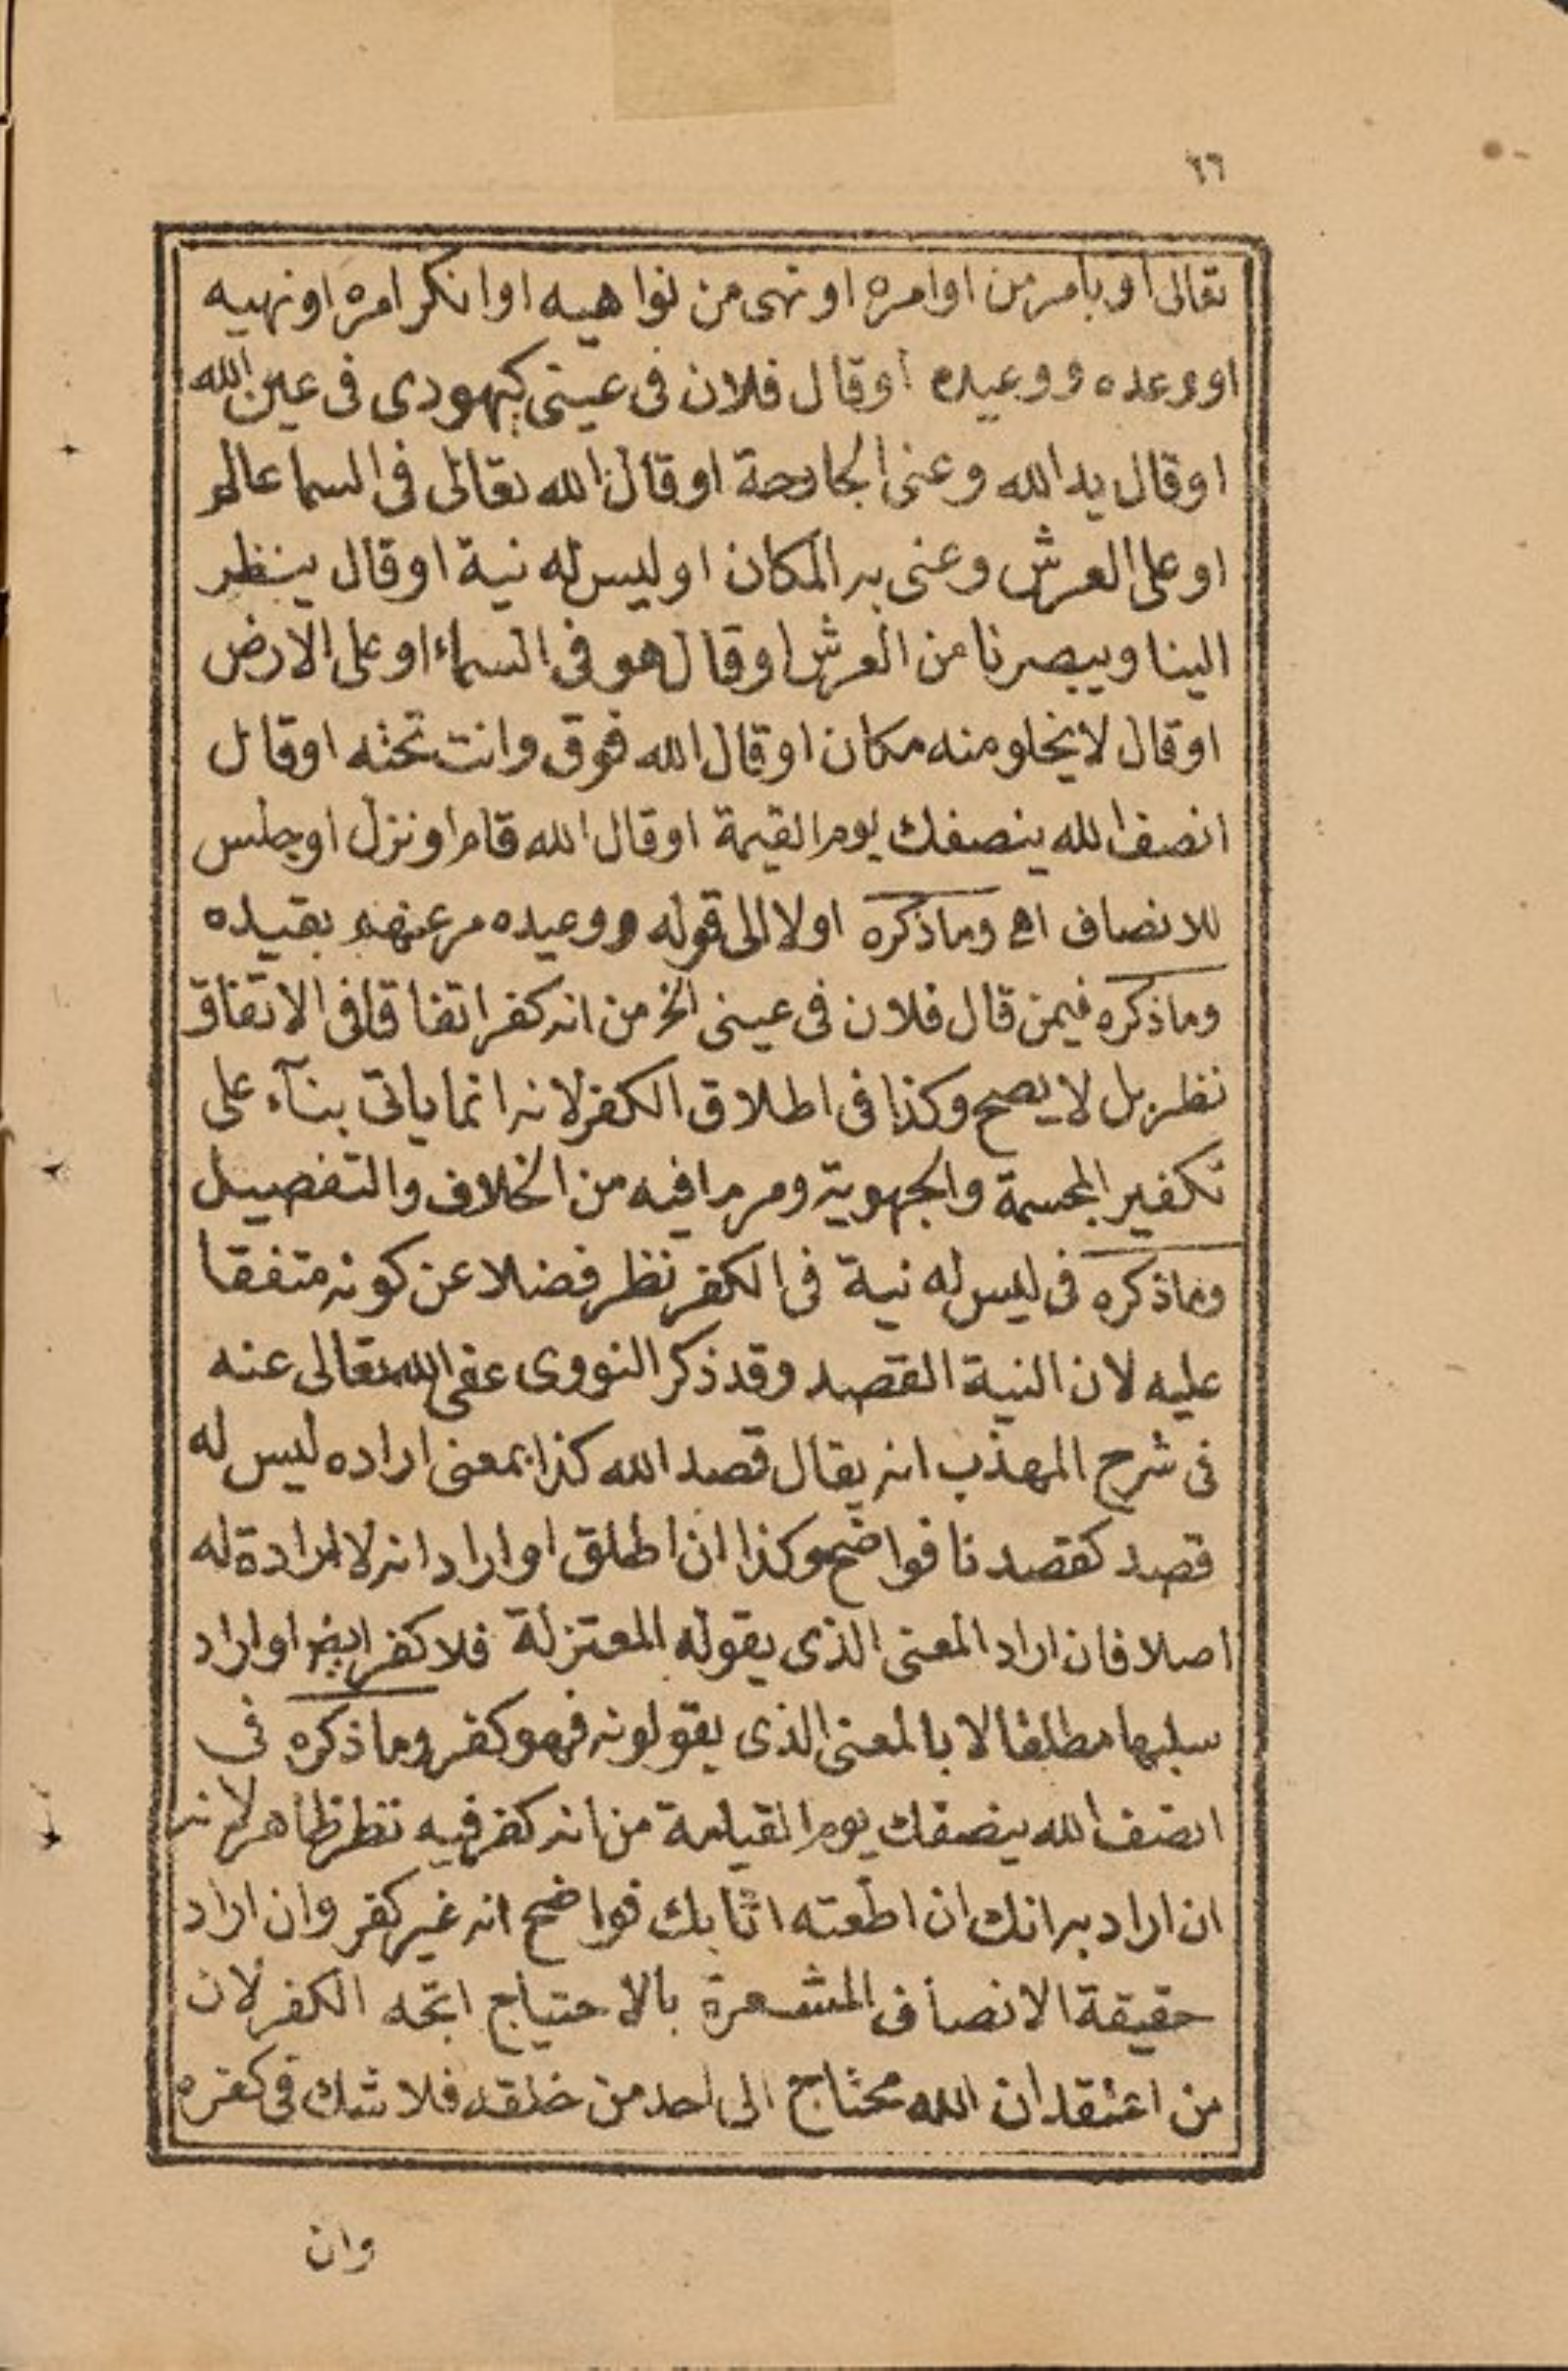 ٦٦
تعالى او بامر من اوامره او نهى من نواهيه او انكر امره او نهيه
او وعده ووعيده او قال فلان فى عينى كيهودى فى عين الله
او قال يد الله وعنى الجارحة او قال الله تعالى فى السما عالم
او على العرش وعنى به المكان او ليس له نية او قال ينظر
الينا ويبصرنا من العرش او قال هو فى السماء او على الارض
او قال لا يخلو منه مكان او قال الله فوق وانت تحته او قال
انصف الله ينصفك يوم القيمة او قال الله قام او نزل او جلس
للانصاف اهى وما ذكره اولا الى قوله ووعيده مر عنهم بقيده
وما ذكره فيمن قال فلان فى عينى الخ من انه كفر اتفاقا فى الاتفاق
نظر بل لا يصح وكذا فى اطلاق الكفر لانه انما ياتى بنآء على
تكفير المجسمة والجهوية ومر ما فيه من الخلاف والتفصيل
وما ذكره فى ليس له نية فى الكفر نظر فضلا عن كونه متفقا
عليه لان النية القصد وقد ذكر النووى عفى الله تعالى عنه
فى شرح المهذب انه يقال قصد الله كذا بمعنى اراده ليس له
قصد كقصدنا فواضح وكذا ان اطلق او اراد انه لا ارادة له
اصلا فان اراد المعنى الذى يقوله المعتزلة فلا كفر ايض او اراد
سلبها مطلقا لا بالمعنى الذى يقولونه فهو كفر وما ذكره فى
انصف الله ينصفك يوم القيامة من انه كفر فيه نظر ظاهر لانه
ان اراد به انك ان اطعته اثابك فواضح انه غير كفر وان اراد
حقيقة الانصاف المشعرة بالاحتياج اتجه الكفر لان
من اعتقد ان الله محتاج الى احد من خلقه فلا شك فى كفره
وان